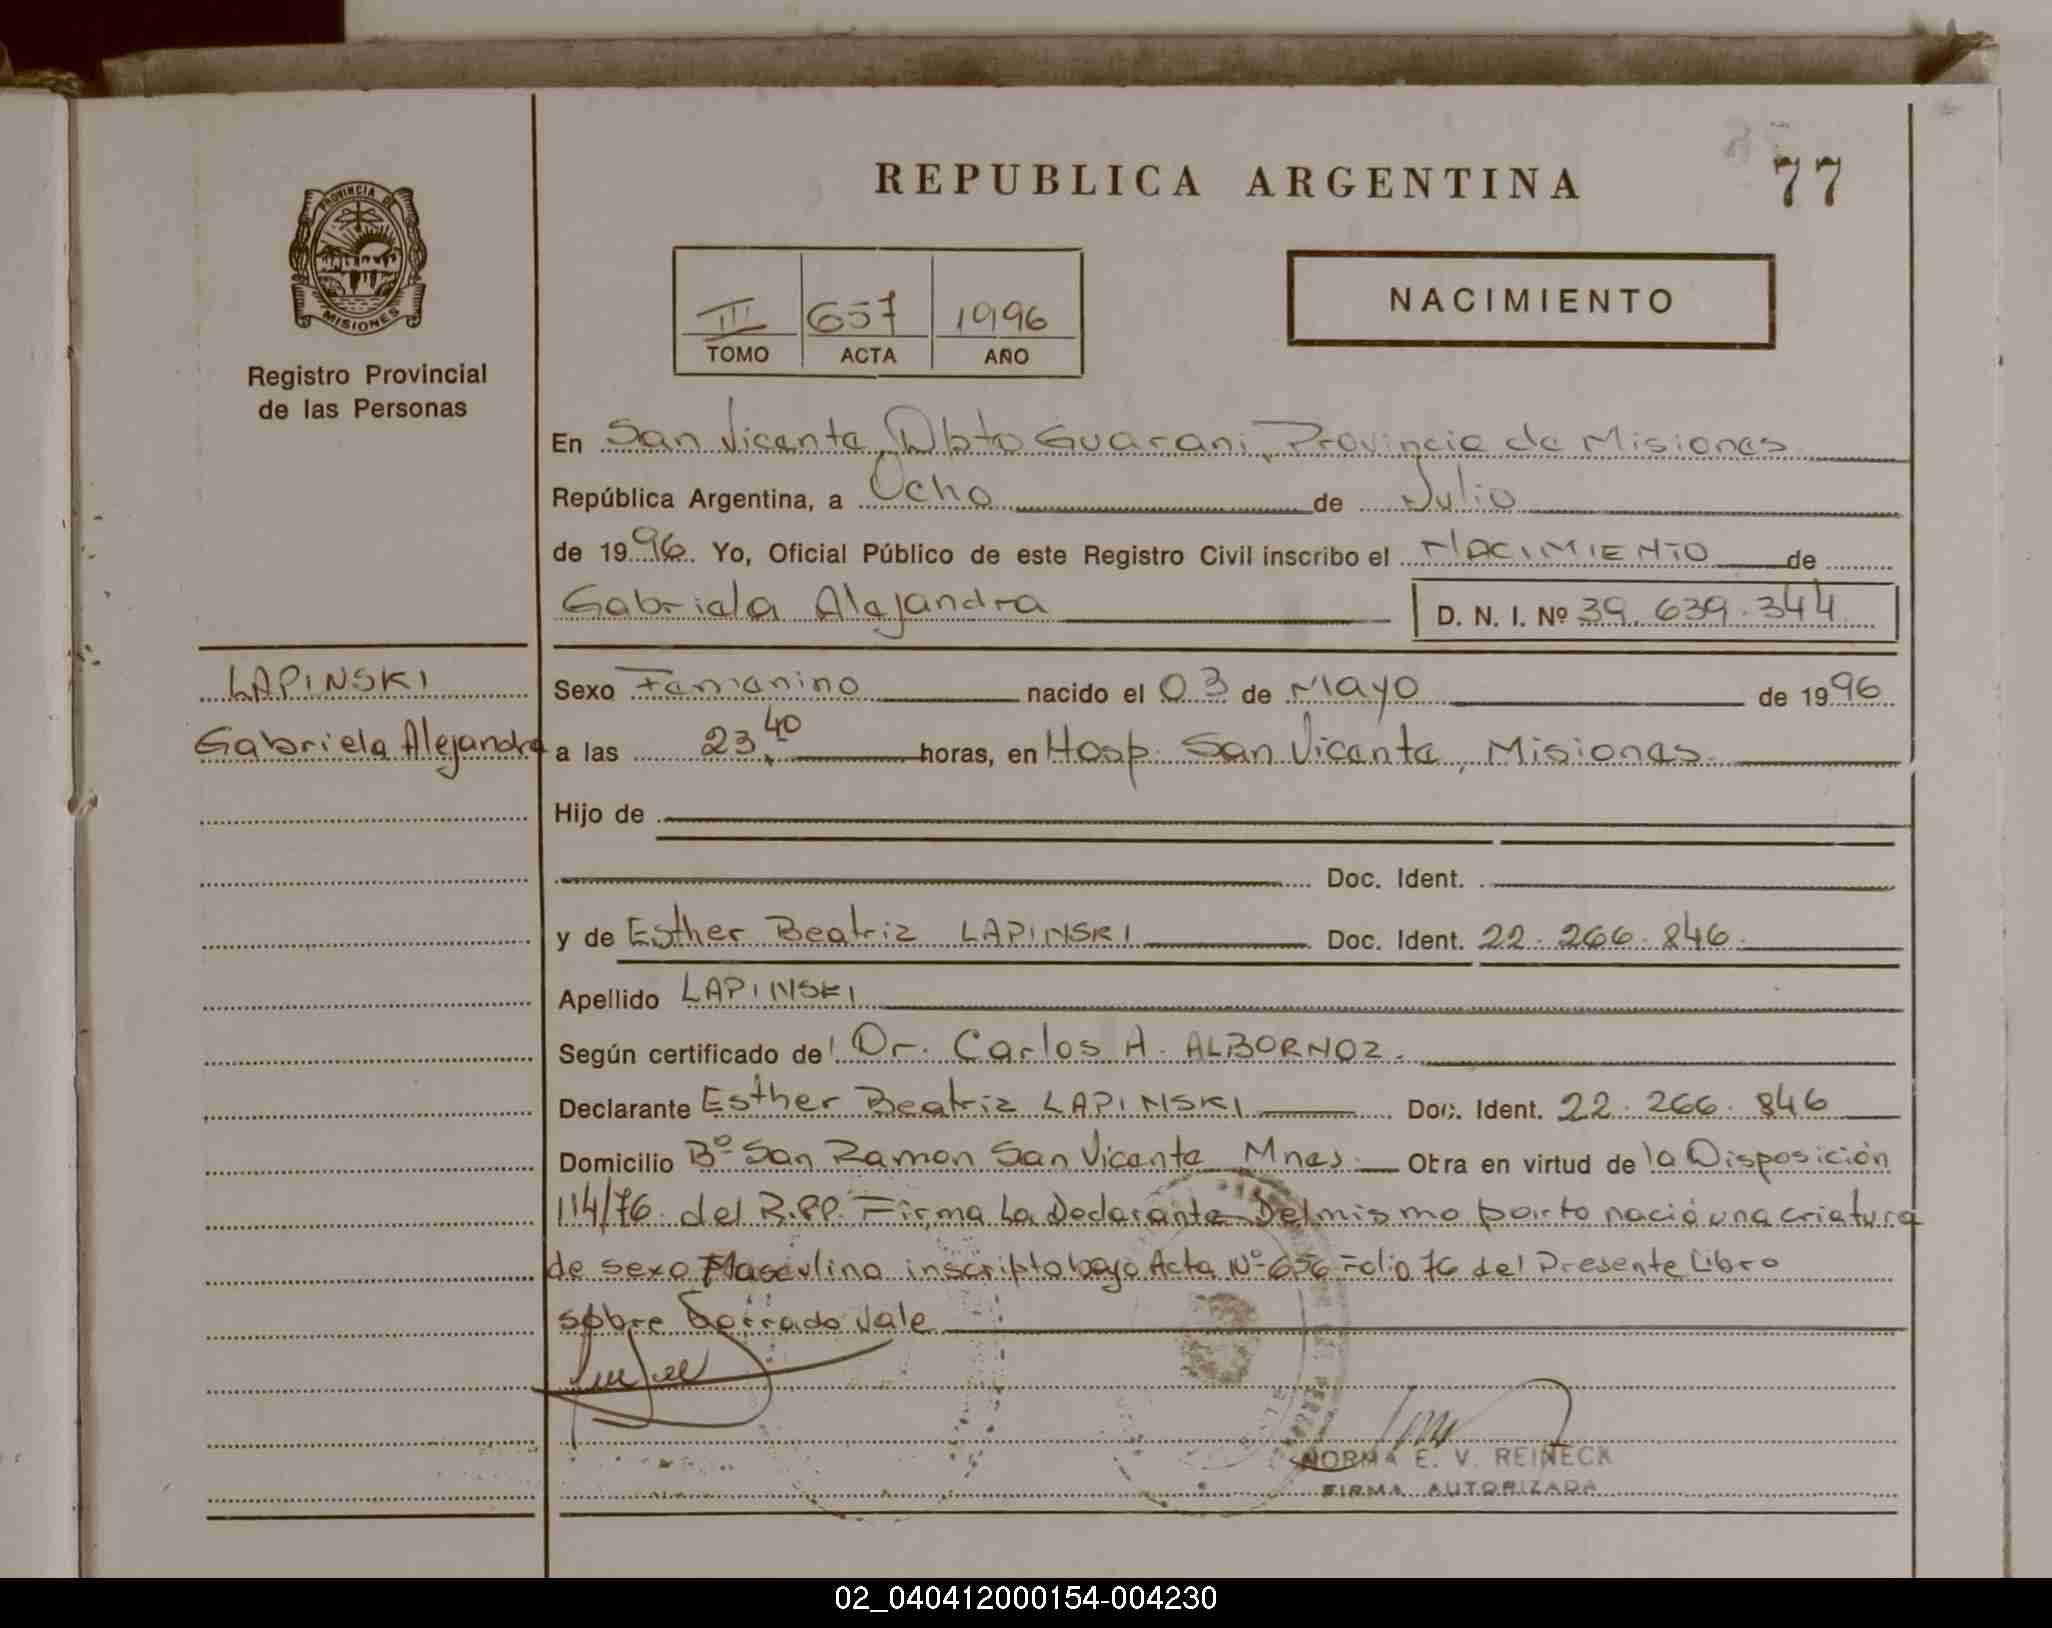 REPUBLICA ARGENTINA
77
PROVINCIA DE
MISIONES
Registro Provincial
de las Personas
III 657 1996
TOMO ACTA AÑO
NACIMIENTO
En San Vicente, Dpto Guarani, Provincia de Misiones
República Argentina, a Ocho de Julio
de 1996. Yo, Oficial Público de este Registro Civil inscribo el NACIMIENTO de
Gabriela Alejandra D. N. I. Nº 39.639.344
LAPINSKI
Gabriela Alejandra
Sexo Femenino nacido el 03 de Mayo de 1996
a las 23,40 horas, en Hosp. San Vicente, Misiones.
Hijo de
Doc. Ident.
y de Esther Beatriz LAPINSKI Doc. Ident. 22.266.846.
Apellido LAPINSKI
Según certificado de Dr. Carlos A. ALBORNOZ.
Declarante Esther Beatriz LAPINSKI Doc. Ident. 22.266.846
Domicilio Bº San Ramon San Vicente Mnes. Obra en virtud de la Disposición
114/76 del R.P.P. Firma La Declarante Del mismo parto nació una criatura
de sexo Masculino inscripto bajo Acta Nº 656 Folio 76 del Presente Libro
sobre Borrado Vale
NORMA E. V. REINECK
FIRMA AUTORIZADA
02_040412000154-004230